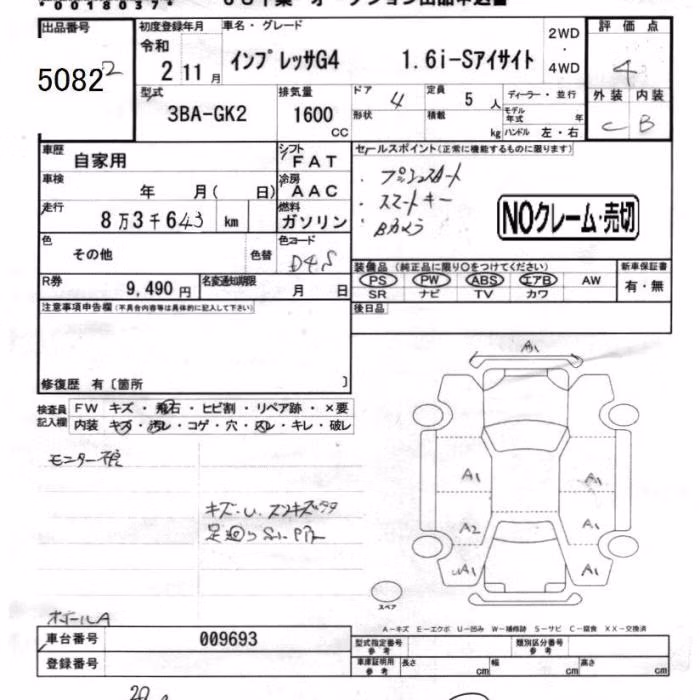 *00180374*
出品番号
5082 2
初度登録年月
令和
2年 11月
車名・グレード
インプレッサG4 1.6i-Sアイサイト
2WD
・
4WD
評価点
4
外装 内装
C B
型式
3BA-GK2
排気量
1600
CC
ドア
4
形状
定員
5 人
積載
kg
ディーラー・並行
モデル年式 年
ハンドル 左・右
車歴
自家用
シフト
FAT
車検
年 月( 日)
冷房
AAC
走行
8万3千643 km
燃料
ガソリン
色
その他
色替
色コード
D4S
R券
9,490円
名変通知期限
月 日
セールスポイント(正常に機能するものに限ります)
・プッシュスタート
・スマートキー
・Bカメラ
NOクレーム・売切
装備品(純正品に限り○をつけてください)
PS PW ABS エアB AW
SR ナビ TV カワ
新車保証書
有・無
後日品
注意事項申告欄(不具合内容等は具体的に記入して下さい)
修復歴 有〔箇所 〕
検査員
記入欄
FW キズ・飛石・ヒビ割・リペア跡・×要
内装 キズ・汚レ・コゲ・穴・スレ・キレ・破レ
モニター
キズ・U
足回りS
A1
A1
A1
A2
A1
A1
A1
スペア
A-キズ E-エクボ U-凹み W-補修跡 S-サビ C-腐食 XX-交換済
車台番号
009693
登録番号
型式指定番号
参考
類別区分番号
参考
車庫証明用
参考
長さ cm
幅 cm
高さ cm